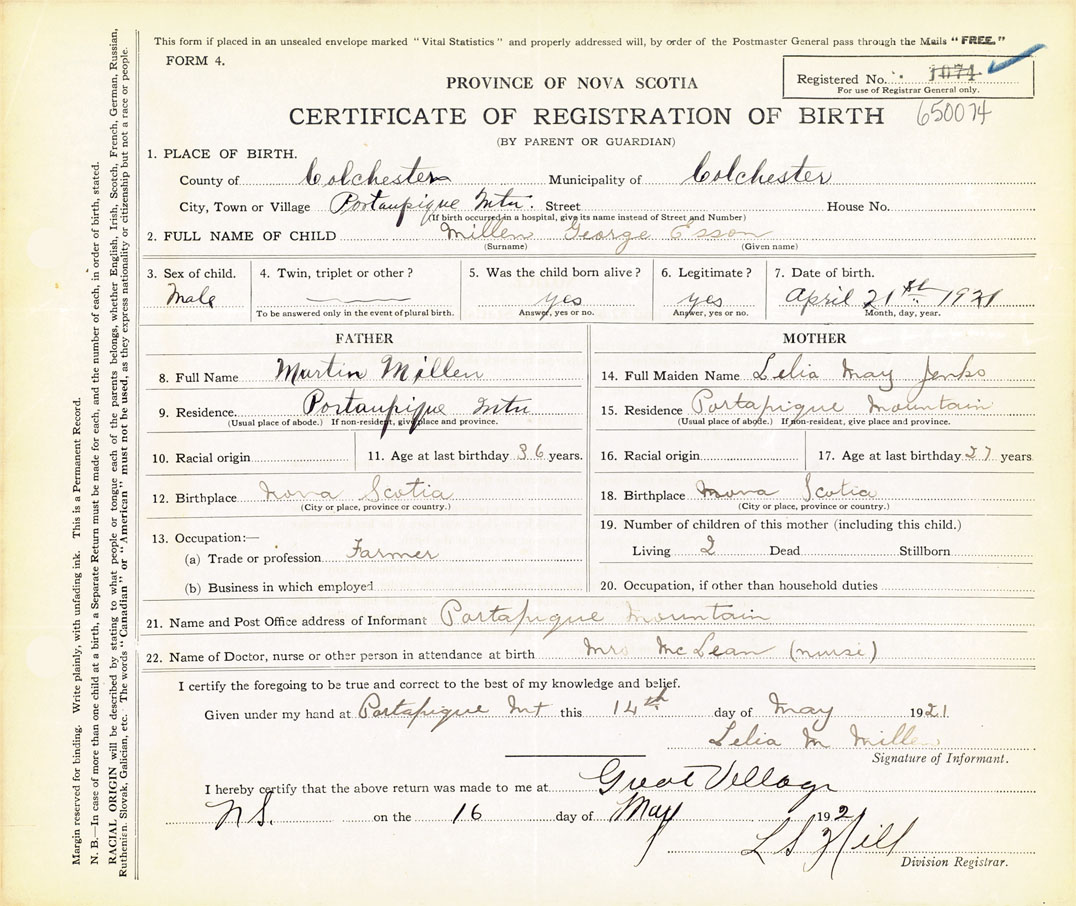 This form if placed in an unsealed envelope marked "Vital Statistics" and properly addressed will, by order of the Postmaster General pass through the Mails "FREE."
FORM 4.
Registered No. 1074
For use of Registrar General only.
650074
PROVINCE OF NOVA SCOTIA
CERTIFICATE OF REGISTRATION OF BIRTH
(BY PARENT OR GUARDIAN)
1. PLACE OF BIRTH.
County of Colchester Municipality of Colchester
City, Town or Village Portaupique Mtn. Street House No.
(If birth occurred in a hospital, give its name instead of Street and Number)
2. FULL NAME OF CHILD Millen George Esson
(Surname) (Given name)
3. Sex of child. 4. Twin, triplet or other? 5. Was the child born alive? 6. Legitimate? 7. Date of birth.
Male yes yes April 21st 1921
To be answered only in the event of plural birth. Answer, yes or no. Answer, yes or no. Month, day, year.
FATHER MOTHER
8. Full Name Martin Millen 14. Full Maiden Name Lelia May Jenks
9. Residence. Portaupique Mtn 15. Residence Portapique Mountain
(Usual place of abode.) If non-resident, give place and province. (Usual place of abode.) If non-resident, give place and province.
10. Racial origin 11. Age at last birthday 36 years. 16. Racial origin 17. Age at last birthday 27 years
12. Birthplace Nova Scotia 18. Birthplace Nova Scotia
(City or place, province or country.) (City or place, province or country.)
13. Occupation:— 19. Number of children of this mother (including this child.)
(a) Trade or profession Farmer Living 2 Dead Stillborn
(b) Business in which employed 20. Occupation, if other than household duties
21. Name and Post Office address of Informant Portapique Mountain
22. Name of Doctor, nurse or other person in attendance at birth Mrs McLean (nurse)
I certify the foregoing to be true and correct to the best of my knowledge and belief.
Given under my hand at Portapique Mt this 14th day of May 1921
Lelia M Millen
Signature of Informant.
I hereby certify that the above return was made to me at Great Village
N.S. on the 16 day of May 192
L S Hill
Division Registrar.
Margin reserved for binding. Write plainly, with unfading ink. This is a Permanent Record.
N. B.—In case of more than one child at a birth, a Separate Return must be made for each, and the number of each, in order of birth, stated.
RACIAL ORIGIN will be described by stating to what people or tongue each of the parents belongs, whether English, Irish, Scotch, French, German, Russian,
Ruthenien, Slovak, Galician, etc. The words "Canadian" or "American" must not be used, as they express nationality or citizenship but not a race or people.